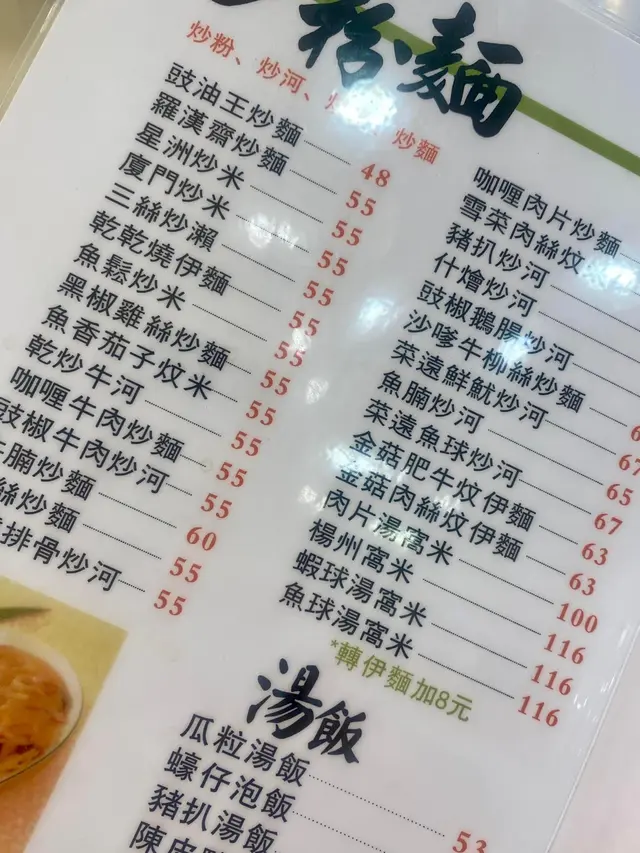 粉麵
炒粉、炒河、炒麵
豉油王炒麵 48
羅漢齋炒麵 55
星洲炒米 55
廈門炒米 55
三絲炒瀨 55
乾乾燒伊麵 55
魚鬆炒米 55
黑椒雞絲炒麵 55
魚香茄子炆米 55
乾炒牛河 55
咖喱牛肉炒麵 55
豉椒牛肉炒河 55
腩炒麵 60
絲炒麵 55
排骨炒河 55
咖喱肉片炒麵
雪菜肉絲炆
豬扒炒河
什燴炒河
豉椒鵝腸炒河
沙嗲牛柳絲炒麵
菜遠鮮魷炒河 67
魚腩炒河 65
菜遠魚球炒河 67
金菇肥牛炆伊麵 63
金菇肉絲炆伊麵 63
肉片湯窩米 100
楊州窩米 116
蝦球湯窩米 116
魚球湯窩米 116
*轉伊麵加8元
湯飯
瓜粒湯飯 53
蠔仔泡飯
豬扒湯飯
陳皮